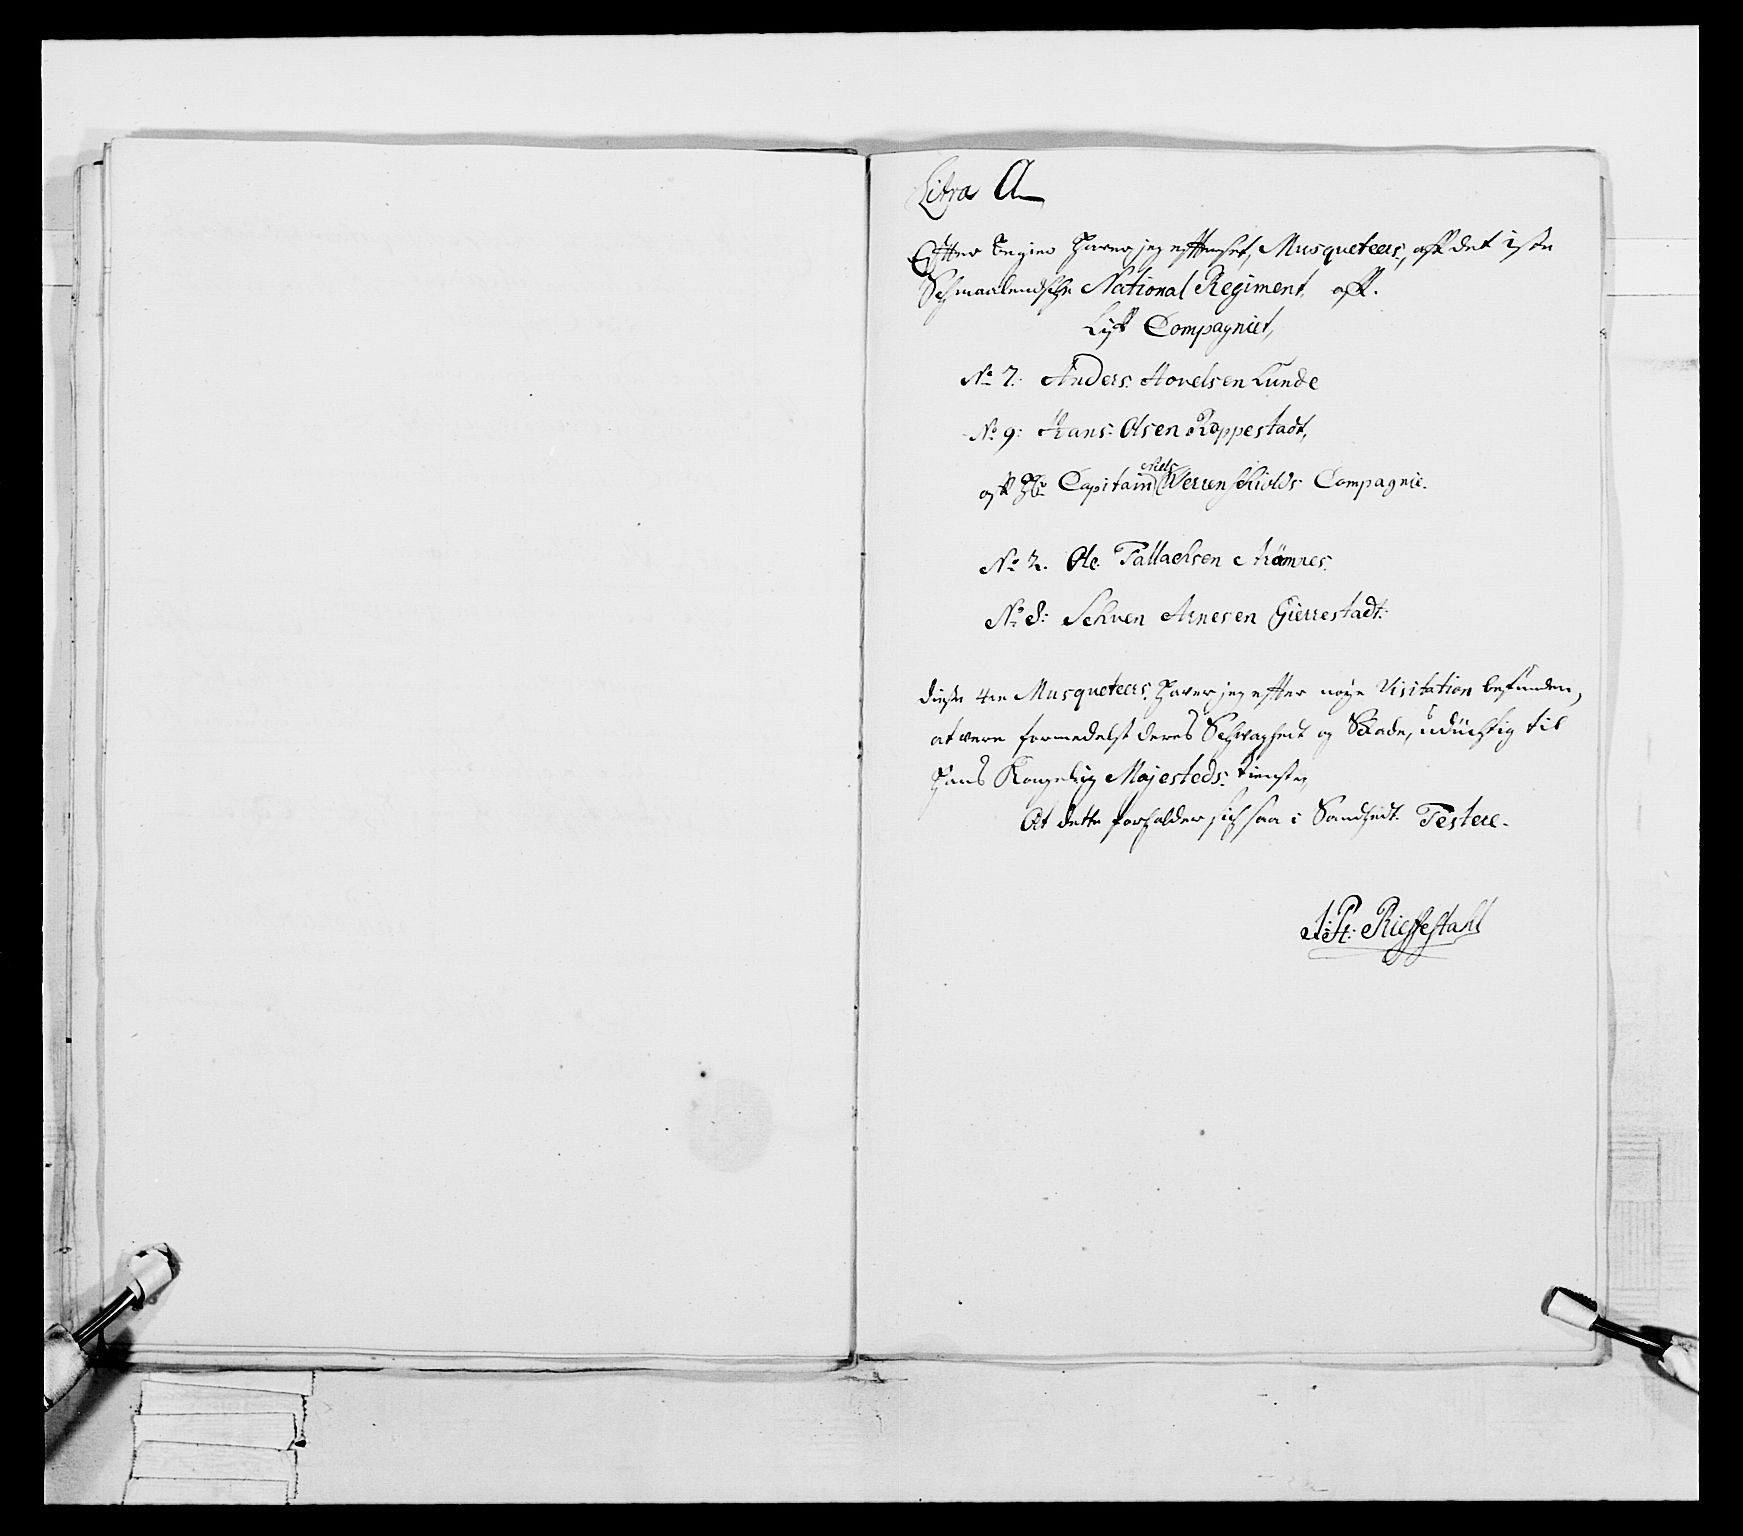 Litra A
Efter haver jeg Musqueteers, aff det 1ste
National Regiment aff.
Liff Compagniet,
No 7. Anders Hovelsen Lunde
No 9: Hans Olsen Roppestadt,
aff Hr Capitain Niels Werenskiolds Compagnie.
No 2. Ole Tallachsen
No 8: Schven Arnesen Gierrestadt:
disse 4re Musqueteers haver jeg efter nøye Visitation befunden,
at være formedelst deres Schvaghedt og Skade, udüchtig til
Hans Kongelig Majesteds: tieneste,
At dette forholder sich saa i Sandhedt Testere.
Rieffestahl